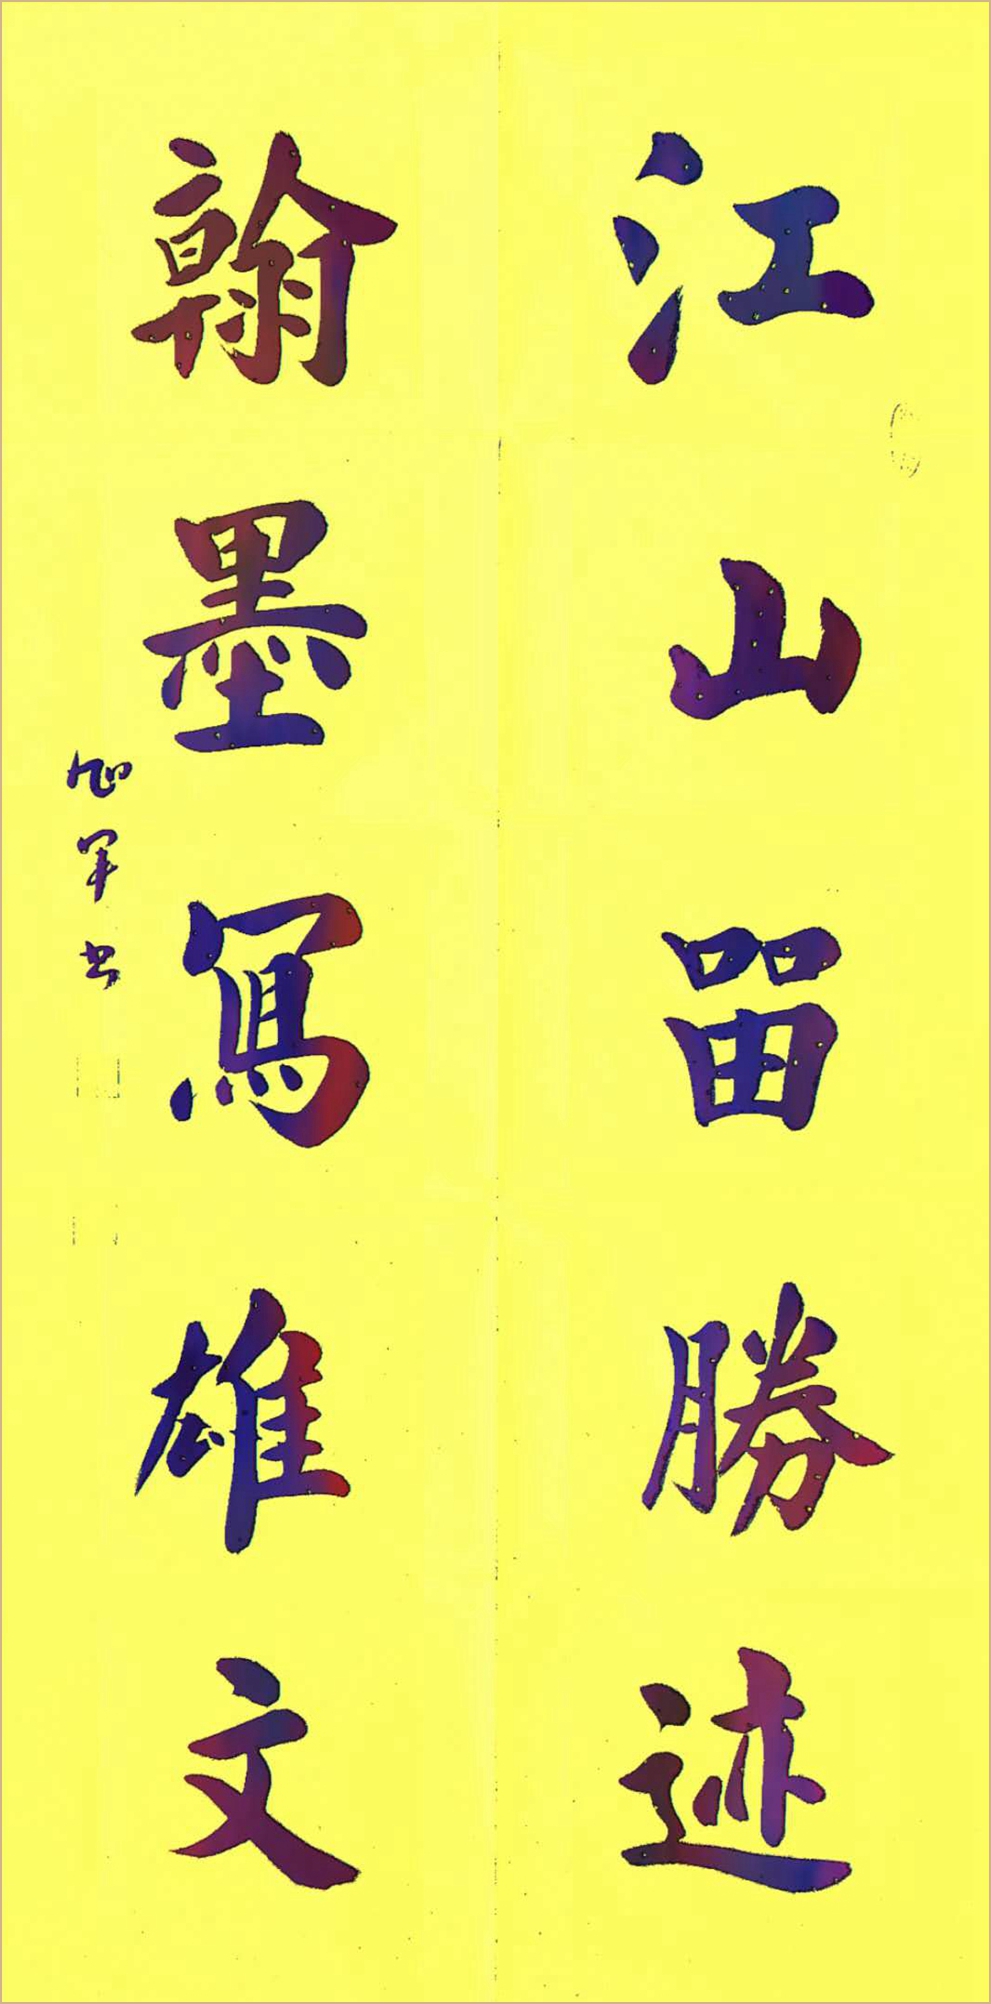 江山畱勝迹
翰墨寫雄文
旭軍书